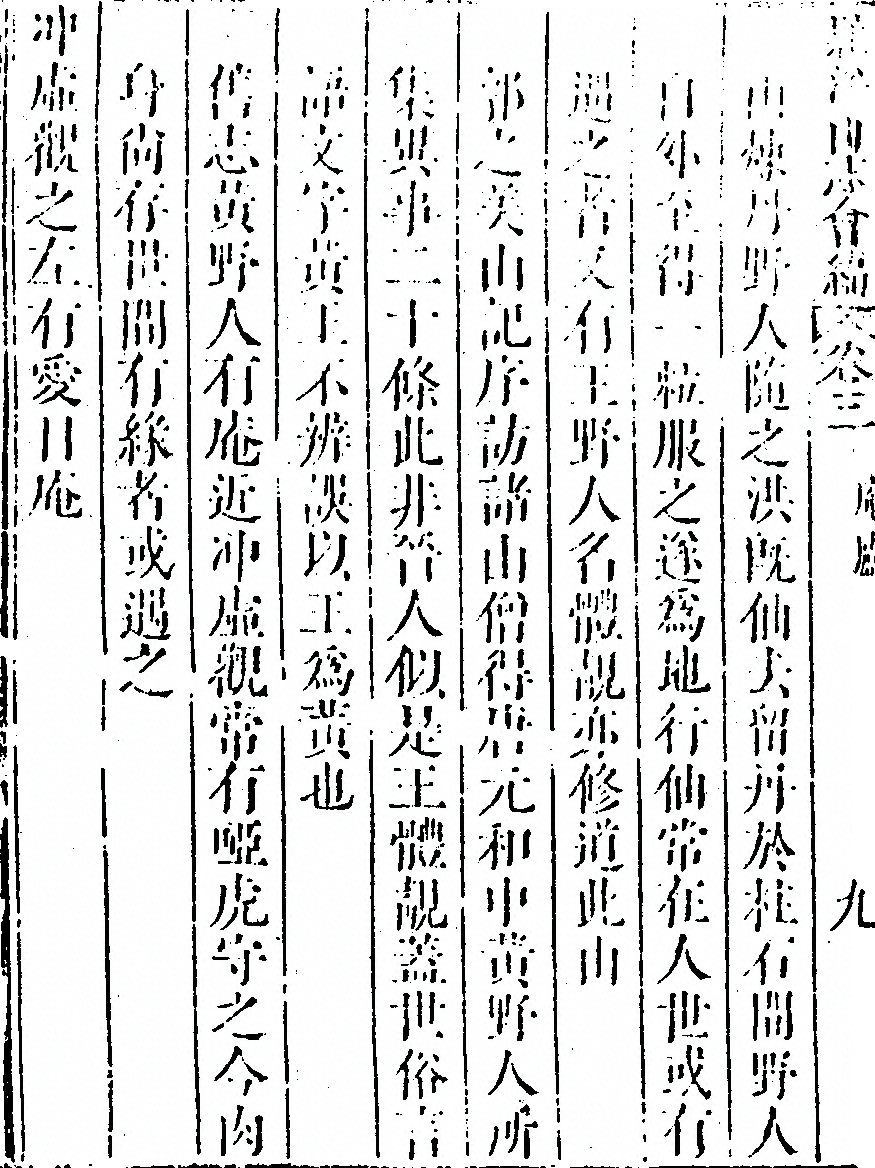 羅浮山志會編 卷三 九
山煉丹野人隨之洪既仙去留丹於柱石間野人
自外至得一粒服之遂為地行仙常在人世或有
遇之者又有王野人名體靚亦修道此山
郭之美山記序訪諸山僧得唐元和中黃野人所
集異事二十條此非晉人似是王體靚蓋世俗言
語文字黃王不辨誤以王為黃也
舊志黃野人有庵近冲虛觀常有啞虎守之今肉
身尚存世間有緣者或遇之
冲虛觀之左有愛日庵